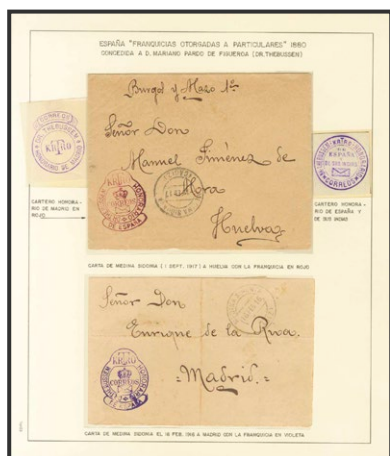 ESPAÑA "FRANQUICIAS OTORGADAS A PARTICULARES" 1880
CONCEDIDA A D. MARIANO PARDO DE FIGUEROA (DR. THEBUSSEM)
Señor Don
Manuel Jiménez de
Mora
Huelva
KRTRO
CORREOS
DE ESPAÑA
DE ESPAÑA
Y DE SUS INDIAS
CORREOS
CARTERO HONORA-
RIO DE MADRID EN
ROJO
CARTERO HONORA-
RIO DE ESPAÑA Y
DE SUS INDIAS
CARTA DE MEDINA SIDONIA (1 SEPT. 1917) A HUELVA CON LA FRANQUICIA EN ROJO
Señor Don
Enrique de la Riva
=Madrid.=
CORREOS
CARTA DE MEDINA SIDONIA EL 16 FEB. 1918 A MADRID CON LA FRANQUICIA EN VIOLETA